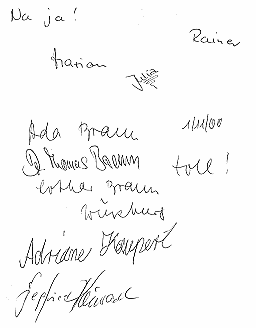 Na ja!
Rainer
Marion
Julia
Ada Braun 1/11/00
Dr. Thomas Braun toll!
Lothar Braun
Würzburg
Adriane
Siegfried